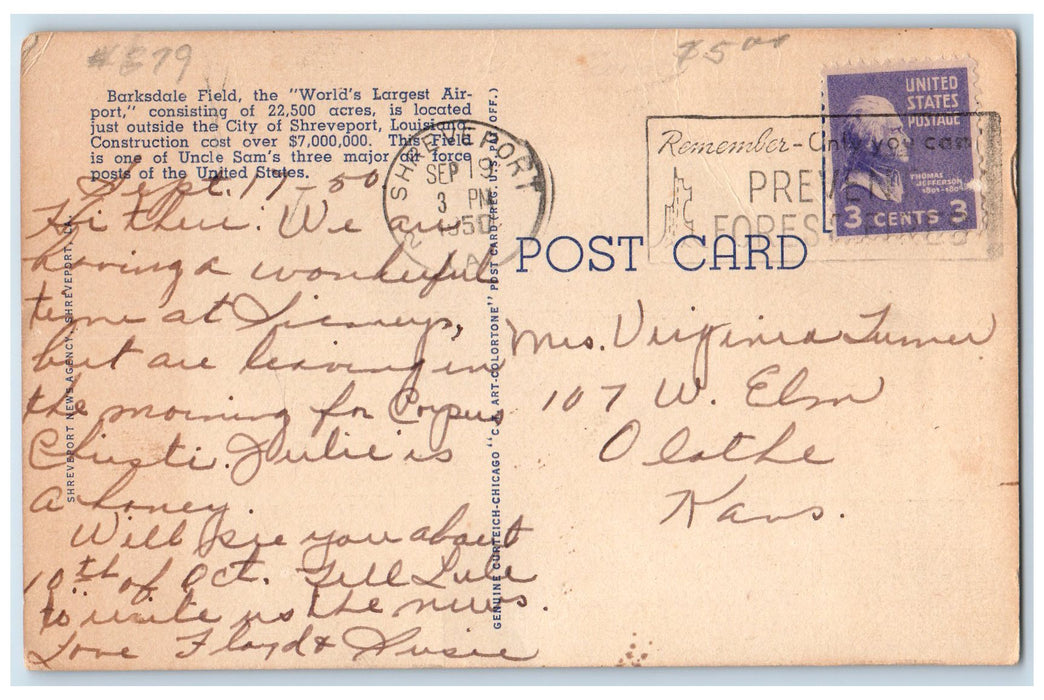 #579
7500
Barksdale Field, the "World's Largest Air-
port," consisting of 22,500 acres, is located
just outside the City of Shreveport, Louisiana.
Construction cost over $7,000,000. This Field
is one of Uncle Sam's three major air force
posts of the United States.
SHREVEPORT NEWS AGENCY, SHREVEPORT, LA.
GENUINE CURTEICH-CHICAGO "C.T. ART-COLORTONE" POST CARD (REG. U.S. PAT. OFF.)
SHREVEPORT
SEP 19
3 PM
1950
LA
Remember - Only you can
PREVENT
FOREST FIRES
UNITED
STATES
POSTAGE
THOMAS
JEFFERSON
1801-1809
3 CENTS 3
POST CARD
Sept. 19-50
Hi there. We are
having a wonderful
time at
but are leaving in
the morning for Corpus
Christi. Julie is
a honey.
Will see you about
10th of Oct. Tell
to write us the news.
Love Floyd & Susie
Mrs. Virginia Turner
107 W. Elm
Olathe
Kans.